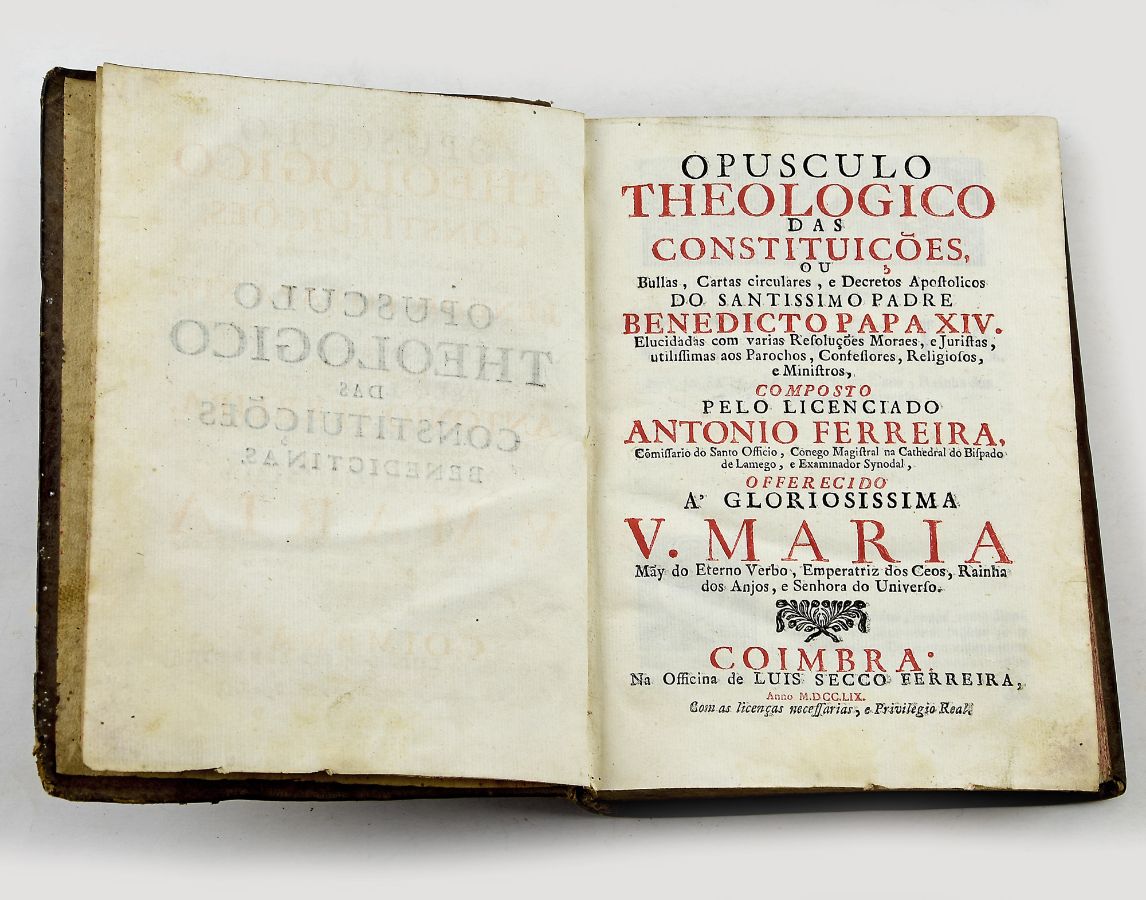 OPUSCULO
THEOLOGICO
DAS
CONSTITUICÕES,
OU
Bullas, Cartas circulares, e Decretos Apoſtolicos
DO SANTISSIMO PADRE
BENEDICTO PAPA XIV.
Elucidadas com varias Reſoluções Moraes, e Juriſtas,
utiliſſimas aos Parochos, Confeſſores, Religioſos,
e Miniſtros,
COMPOSTO
PELO LICENCIADO
ANTONIO FERREIRA,
Cõmiſſario do Santo Officio, Conego Magiſtral na Cathedral do Biſpado
de Lamego, e Examinador Synodal,
OFFERECIDO
A' GLORIOSISSIMA
V. MARIA
Mãy do Eterno Verbo, Emperatriz dos Ceos, Rainha
dos Anjos, e Senhora do Univerſo.
COIMBRA:
Na Officina de LUIS SECCO FERREIRA,
Anno M.DCC.LIX.
Com as licenças neceſſarias, e Privilegio Real.
OPUSCULO
THEOLOGICO
DAS
CONSTITUIÇÕES
BENEDICTINAS.